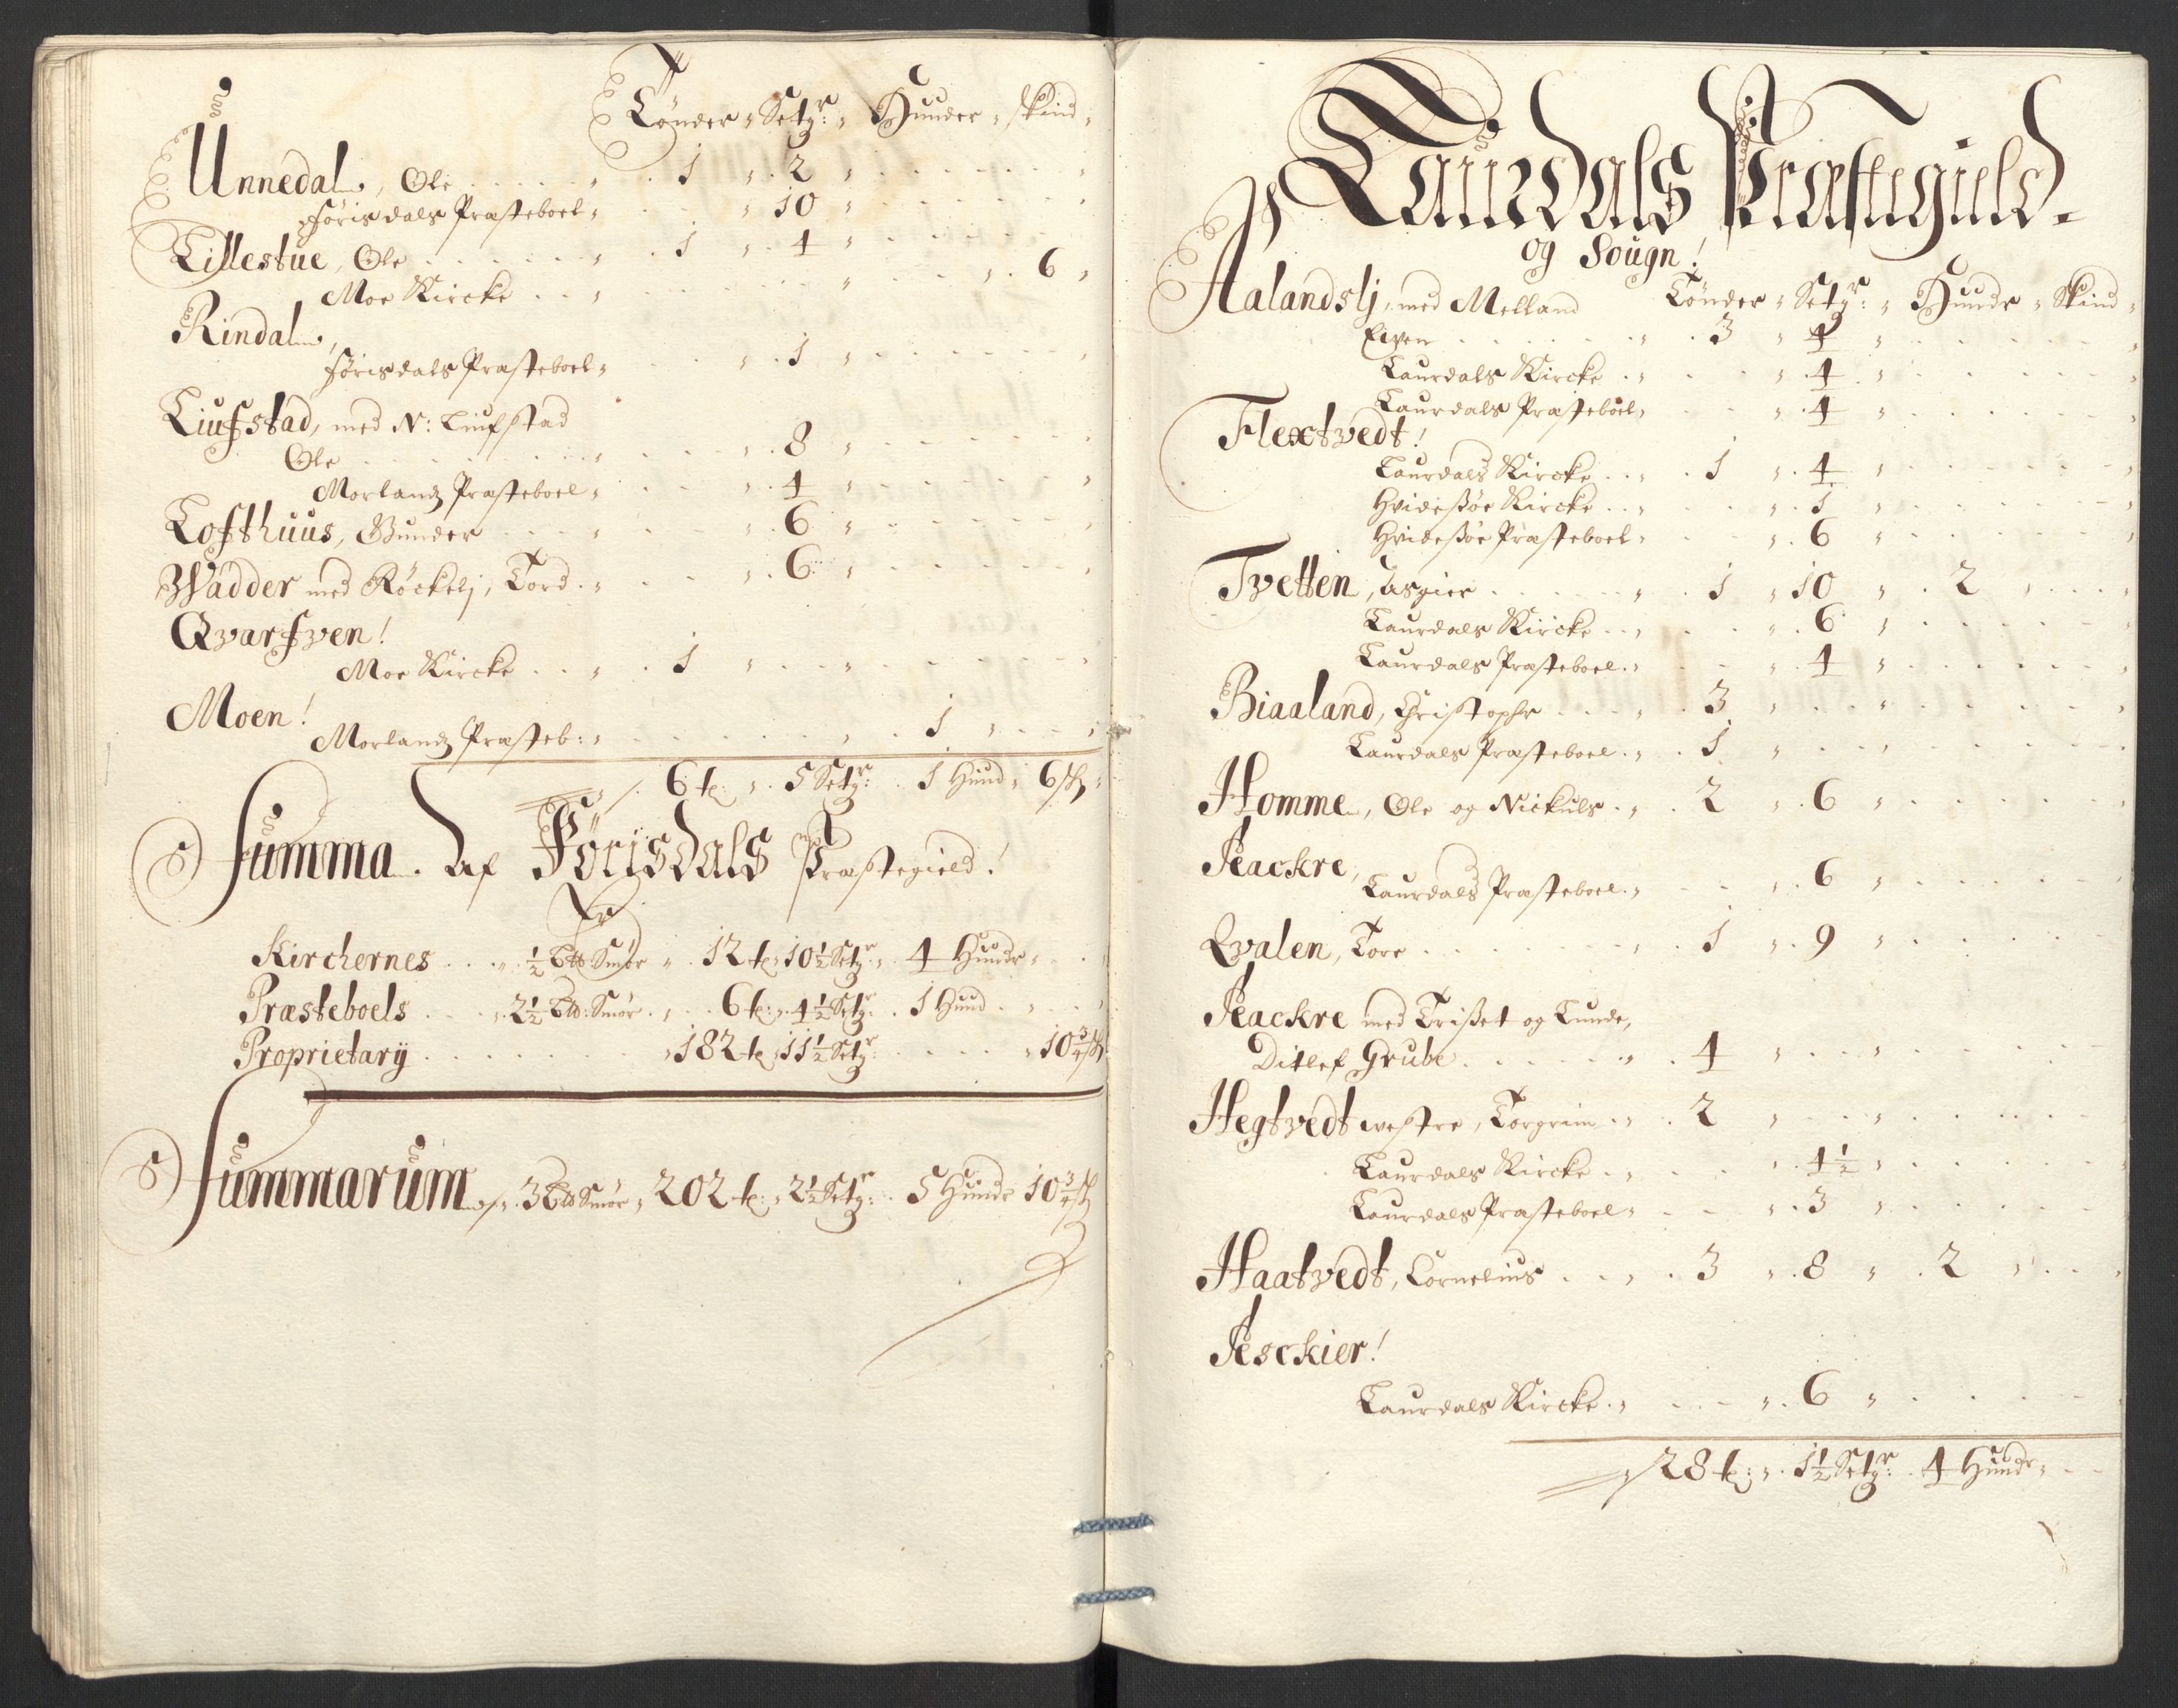 Tönder " Setgr: " Hunder " skind "
Unnedal, Ole . . . " . 1 " . 2 "
Förisdals Præsteboel " . . " 10 "
Lillestue, Ole . . . " . 1 " . 4 "
Moe Kircke . . " . . . " . . " . 6 "
Rindal,
Förisdals Præsteboel " . . " . 1 "
Liufstad, med N: Liufstad
Ole . . . " . . " . 8 "
Morlandz Præsteboel " . . " . 4 "
Lofthuus, Gunder . . . " . . " . 6 "
Wadder med Röckelj, Tord . " . . " . 6 "
Qvarfven!
Moe Kircke . . " . 1 " . . "
Moen!
Morlandz Præsteb: " . . . " . 1 " . . "
6 t: " . 5 Setgr: . 1 Hund " 6 sk "
Summa. Af Förisdals Præstegield!
Kirchernes . . " . ½ Btt Smör " . 12 t: 10½ Setgr " . 4 Hunde "
Præsteboels . . . " . 2½ Btt: Smör . " . 6 t: " 4½ Setgr: . 1 Hund . "
Proprietarij . . . " 182 t: 11½ Setgr: . . . " 10¾ sk
Summarum " . 3 Btt Smör " 202 t: " 2½ Setgr: . 5 Hunde 10¾ sk
Laurdals Præstegield.
og Sougn!
Aalandslj, med Melland Tönder " Setgr: " Hunde " Skind "
Even . . . " . 3 " . 4 "
Laurdals Kircke . " . . " . 4 "
Laurdals Præsteboel " . . " . 4 "
Flextvedt!
Laurdals Kircke . . " . 1 " . 4 "
Hvidessøe Kircke . . " . . " . 1 "
Hvidessøe Præsteboel " . . " . 6 "
Tvetten, Asgier . . . " . 1 " 10 " . 2 "
Laurdals Kircke . . " . . " . 6 "
Laurdals Præsteboel . " . . " . 4 "
Biaaland, Christopher . . . " . 3 " . . "
Laurdals Præsteboel . " . 1 " . . "
Homme, Ole og Nickuls . " . 2 " . 6 "
Aackre,
Laurdals Præsteboel . " . . " . 6 "
Qvalen, Tore . . . " . 1 " . 9 "
Aackre med Trisset og Lunde,
Ditlef Grube . . . " . 4 " . . "
Hegtvedt westre, Torgrim . " . 2 " . . "
Laurdals Kircke . " . . " . 4½ "
Laurdals Præsteboel " . . " . 3 "
Haatvedt, Cornelius . . " . 3 " . 8 " . 2 "
Aesckier!
Laurdals Kircke . " . . " . 6 "
28 t: " . 1½ Setgr: . 4 Hunde "